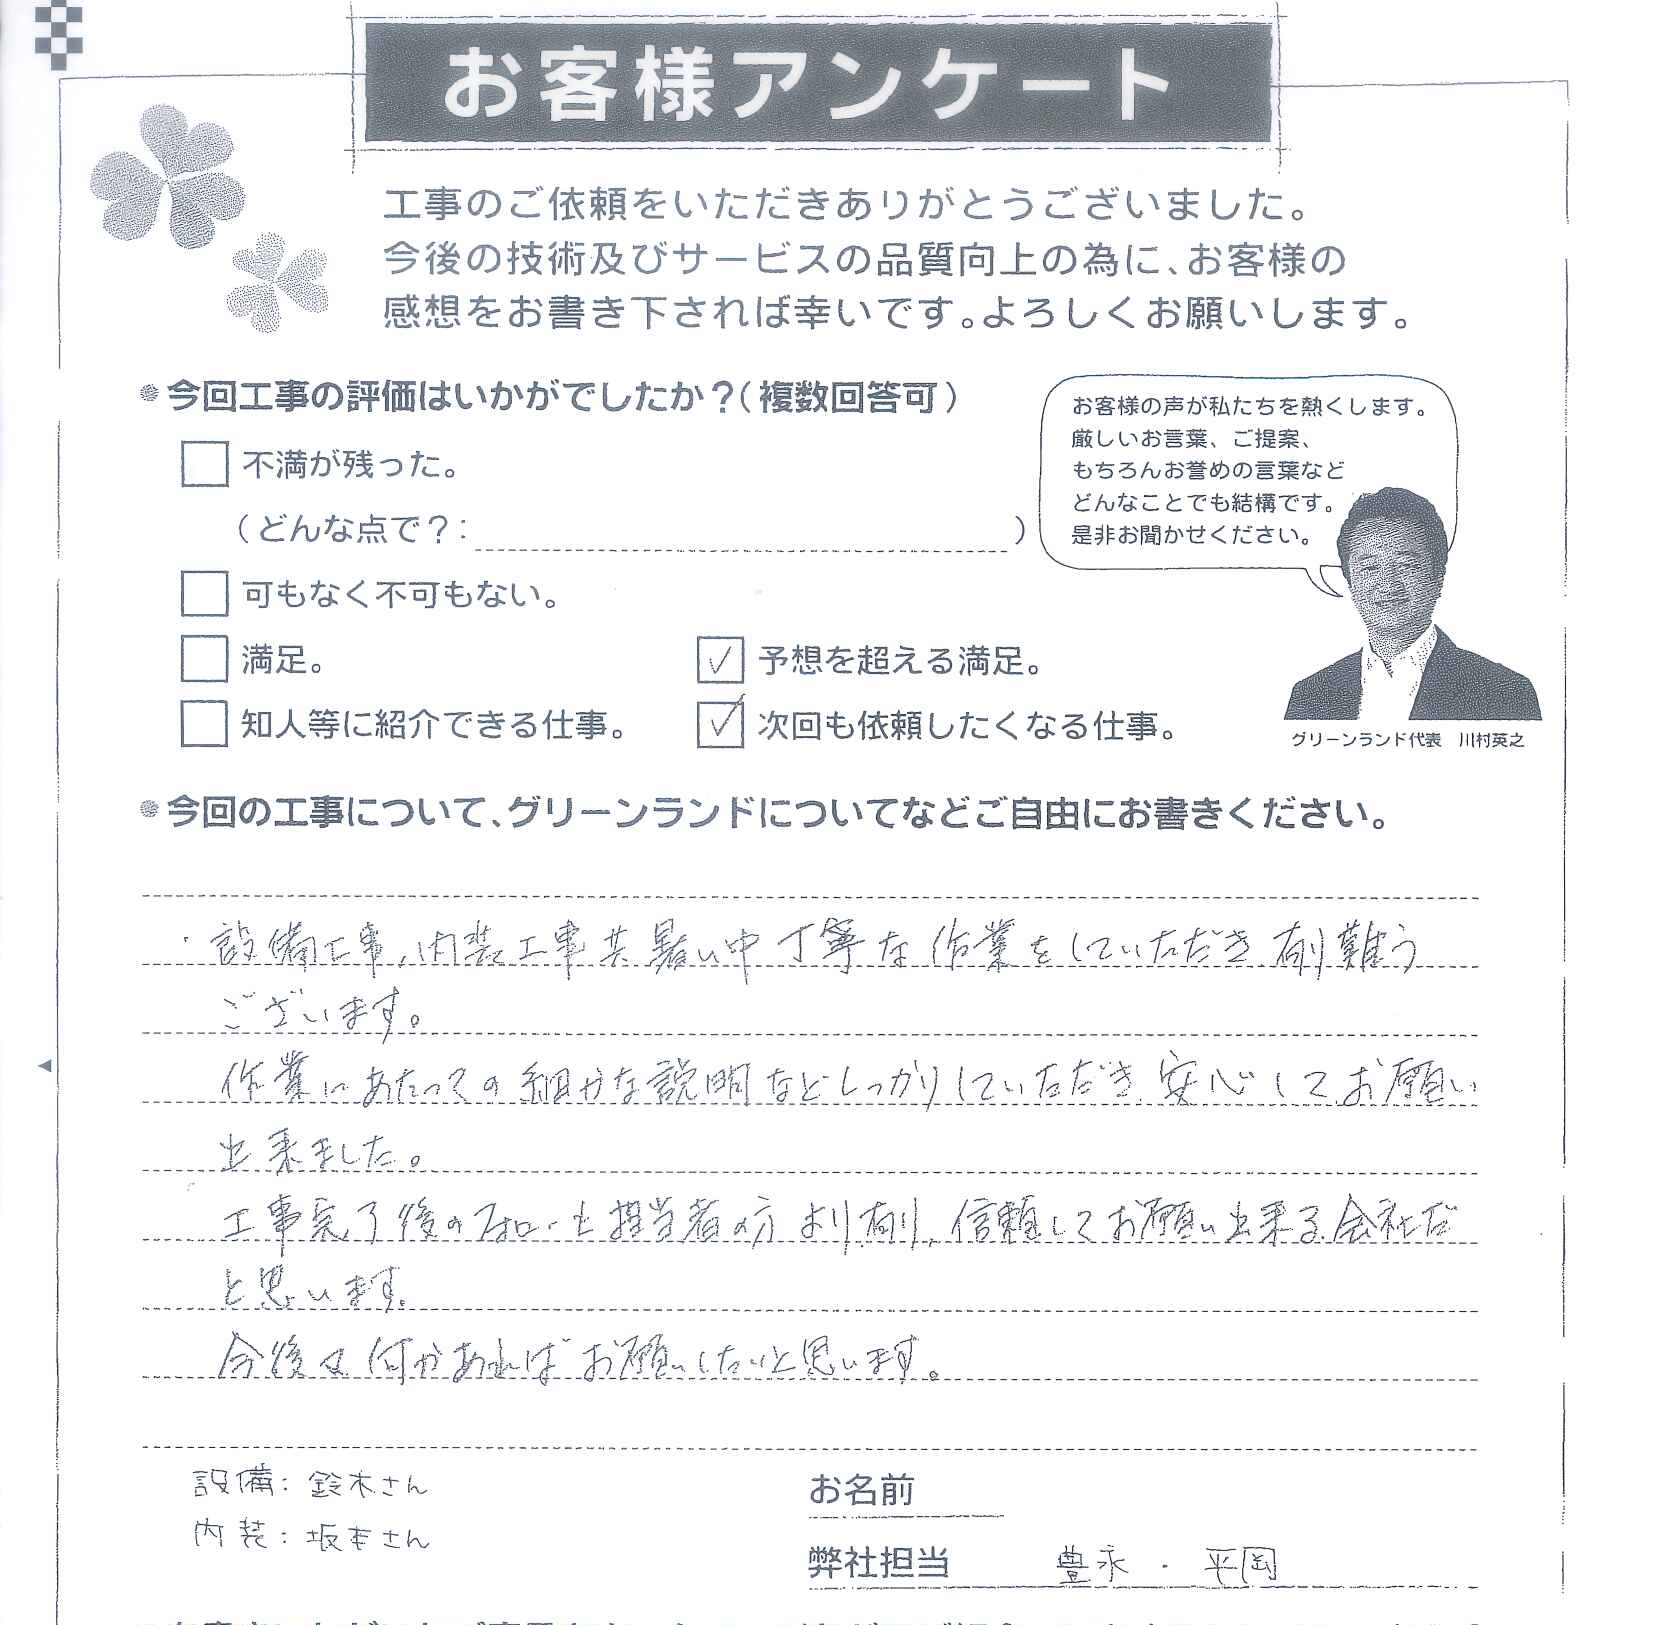 お客様アンケート
工事のご依頼をいただきありがとうございました。
今後の技術及びサービスの品質向上の為に、お客様の
感想をお書き下されば幸いです。よろしくお願いします。
今回工事の評価はいかがでしたか？(複数回答可)
不満が残った。
(どんな点で？: )
可もなく不可もない。
満足。
予想を超える満足。
知人等に紹介できる仕事。
次回も依頼したくなる仕事。
お客様の声が私たちを熱くします。
厳しいお言葉、ご提案、
もちろんお誉めの言葉など
どんなことでも結構です。
是非お聞かせください。
グリーンランド代表 川村英之
今回の工事について、グリーンランドについてなどご自由にお書きください。
・設備工事、内装工事共暑い中丁寧な作業をしていただき有難う
ございます。
作業にあたっての細かな説明などしっかりしていただき、安心してお願い
出来ました。
工事完了後のフォローも担当者の方より有り、信頼してお願い出来る会社だ
と思います。
今後も何かあればお願いしたいと思います。
設備: 鈴木さん
内装: 坂本さん
お名前
弊社担当 豊永・平岡